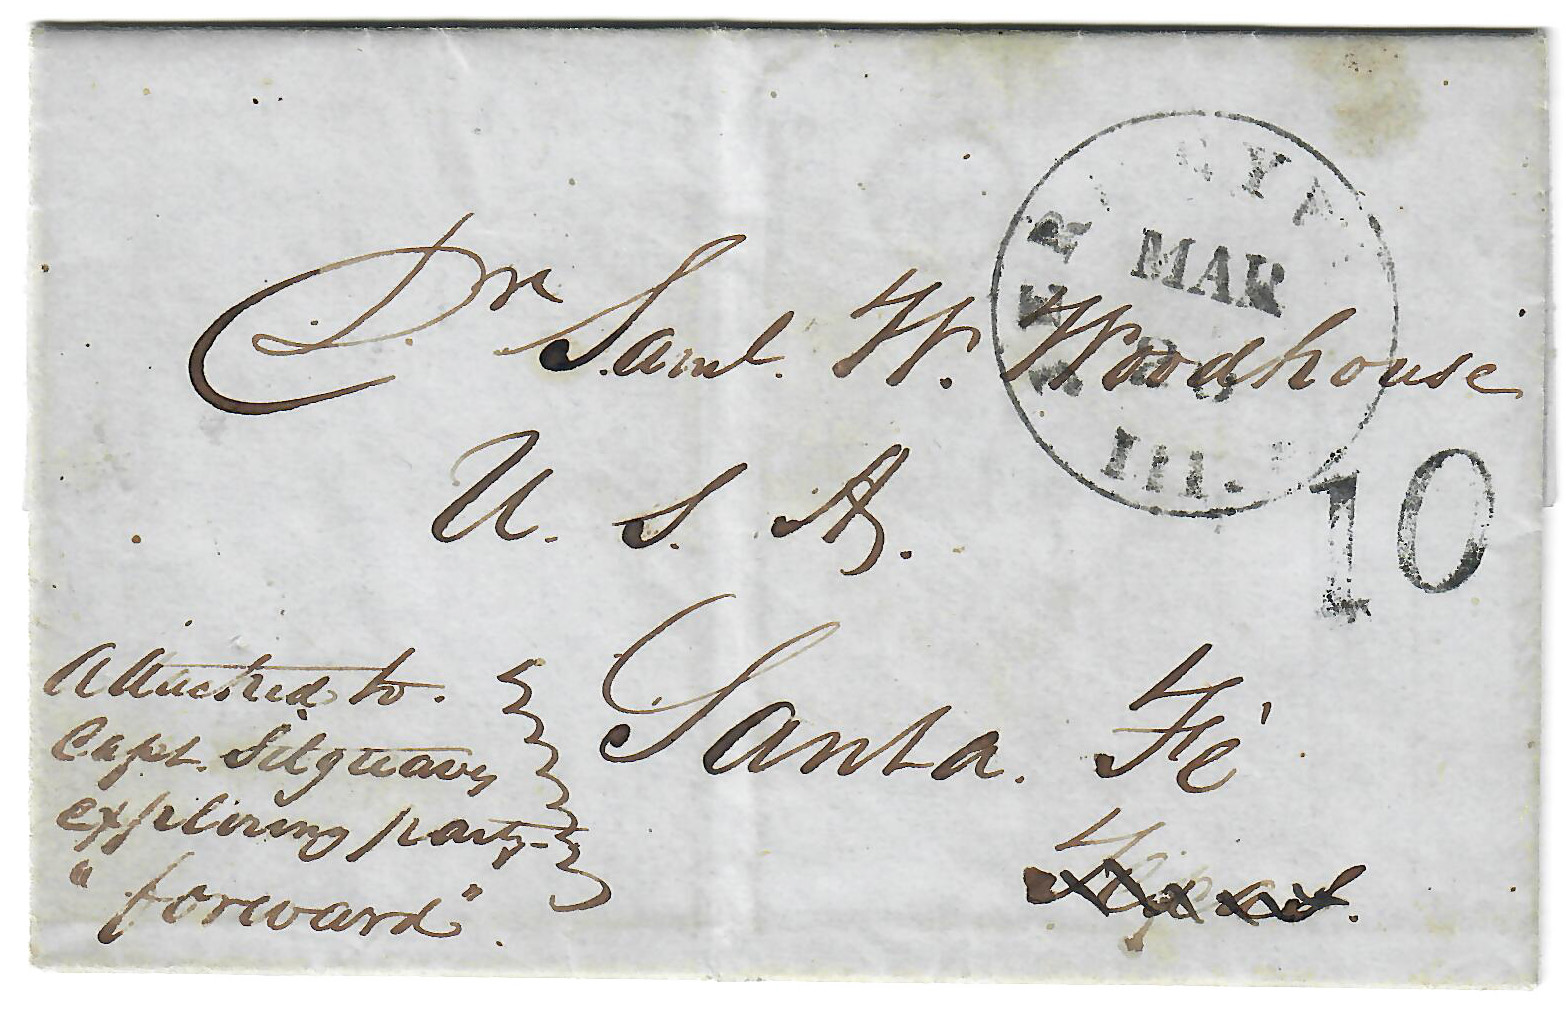 MAR
Ill.
10
Dr. Saml. W. Woodhouse
U. S. A.
Santa Fé
Texas.
Attached to
Capt. Sitgreaves
exploring party
"forward".